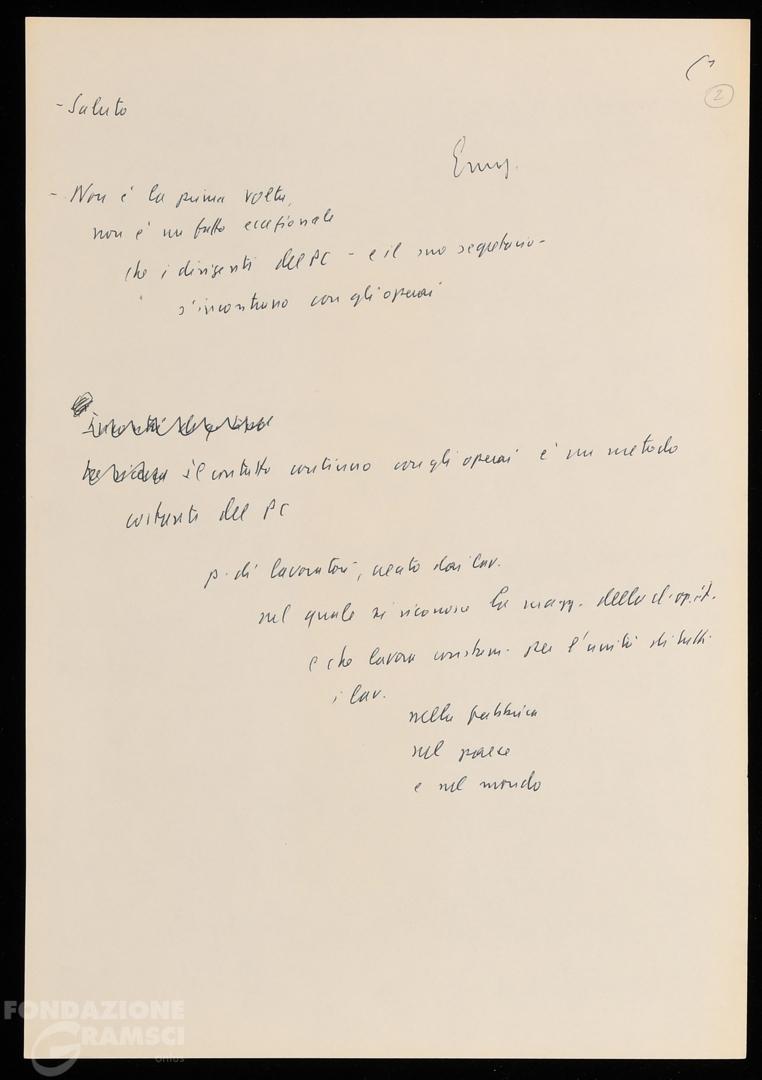 2
- Saluto
- Non è la prima volta,
non è un fatto eccezionale
che i dirigenti del PC - e il suo segretario -
s'incontrano con gli operai
il contatto continuo con gli operai è un metodo
costante del PC
p. di lavoratori, creato dai lav.
nel quale si riconosce la magg. della cl. op. it.
e che lavora constem. per l'unità di tutti
i lav.
nella fabbrica
nel paese
e nel mondo
FONDAZIONE
GRAMSCI
onlus